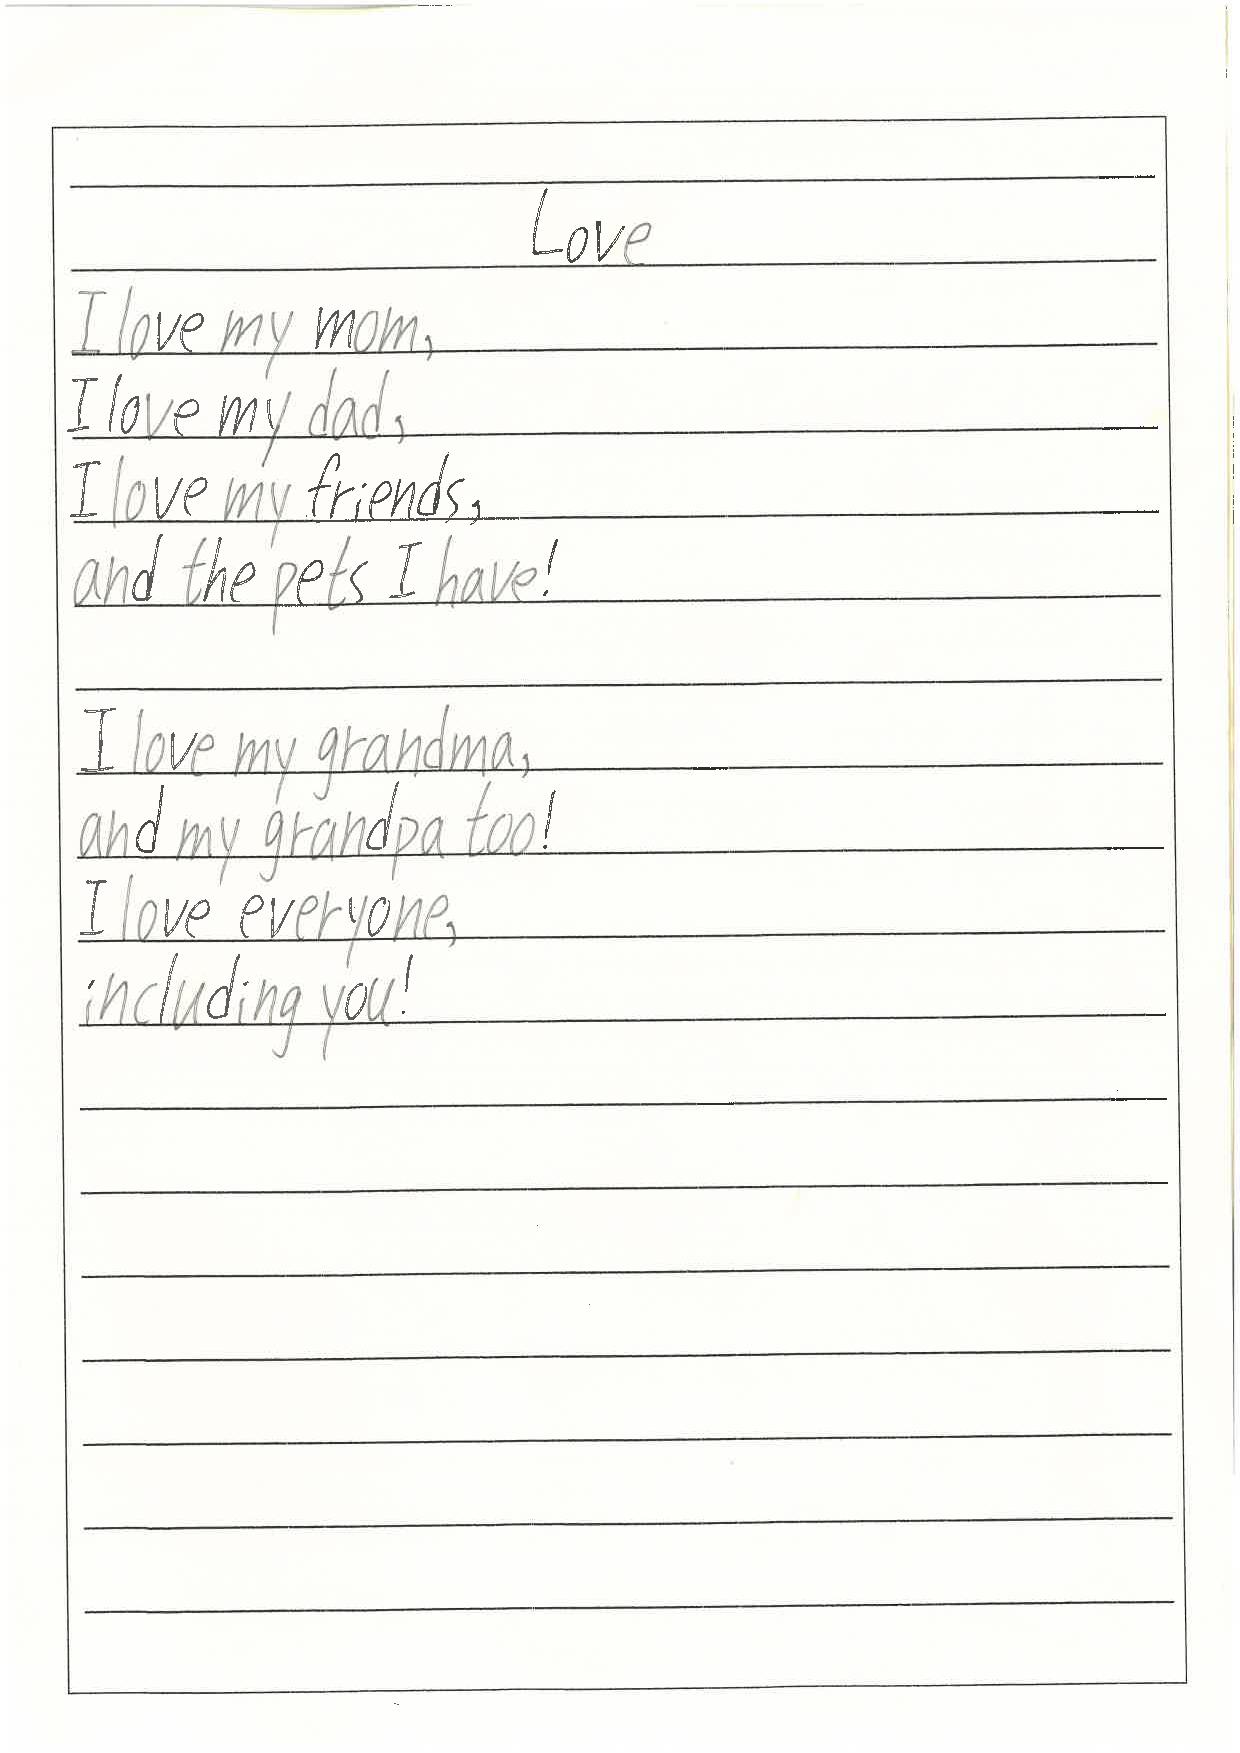 Love
I love my mom,
I love my dad,
I love my friends,
and the pets I have!
I love my grandma,
and my grandpa too!
I love everyone,
including you!